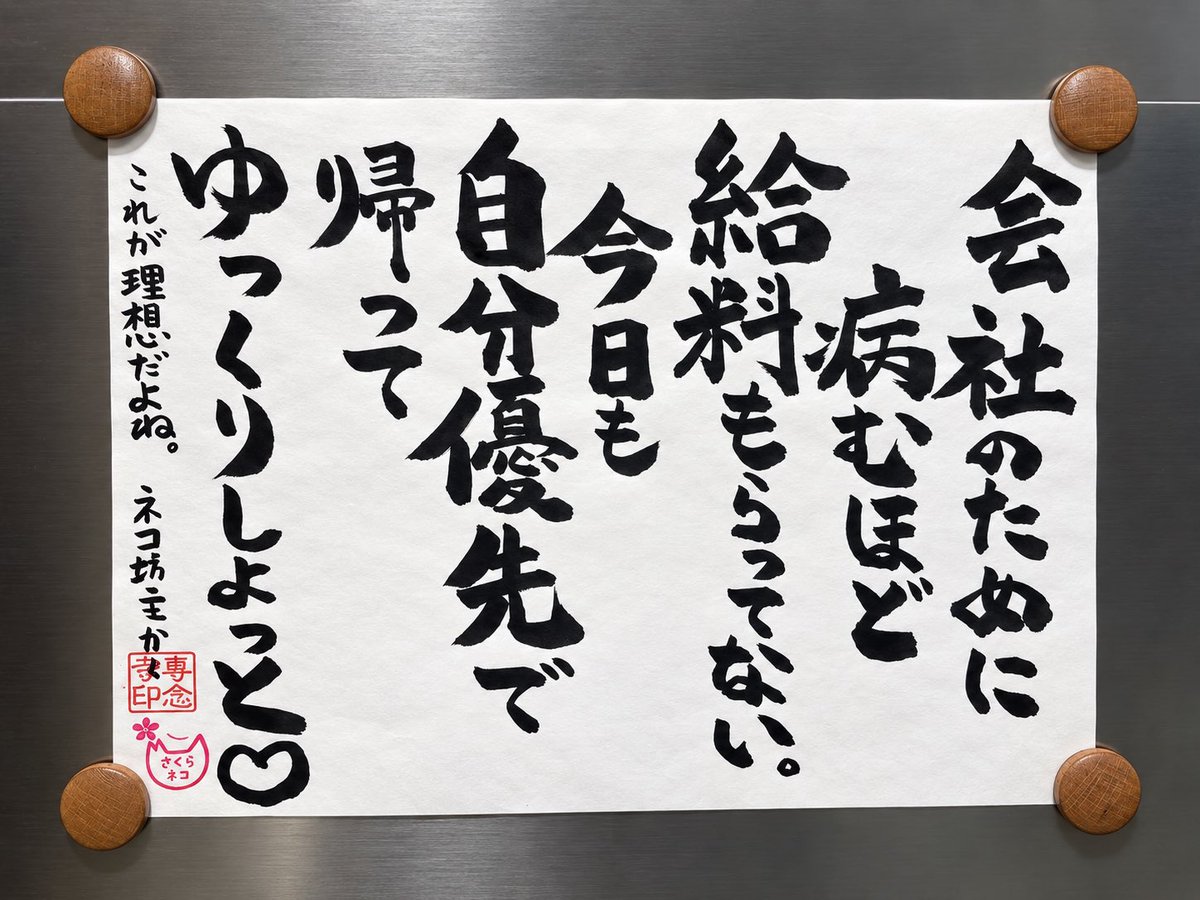 会社のために
病むほど
給料もらってない。
今日も
自分優先で
帰って
ゆっくりしよっと♡
これが理想だよね。 ネコ坊主かく
専念
寺印
さくら
ネコ